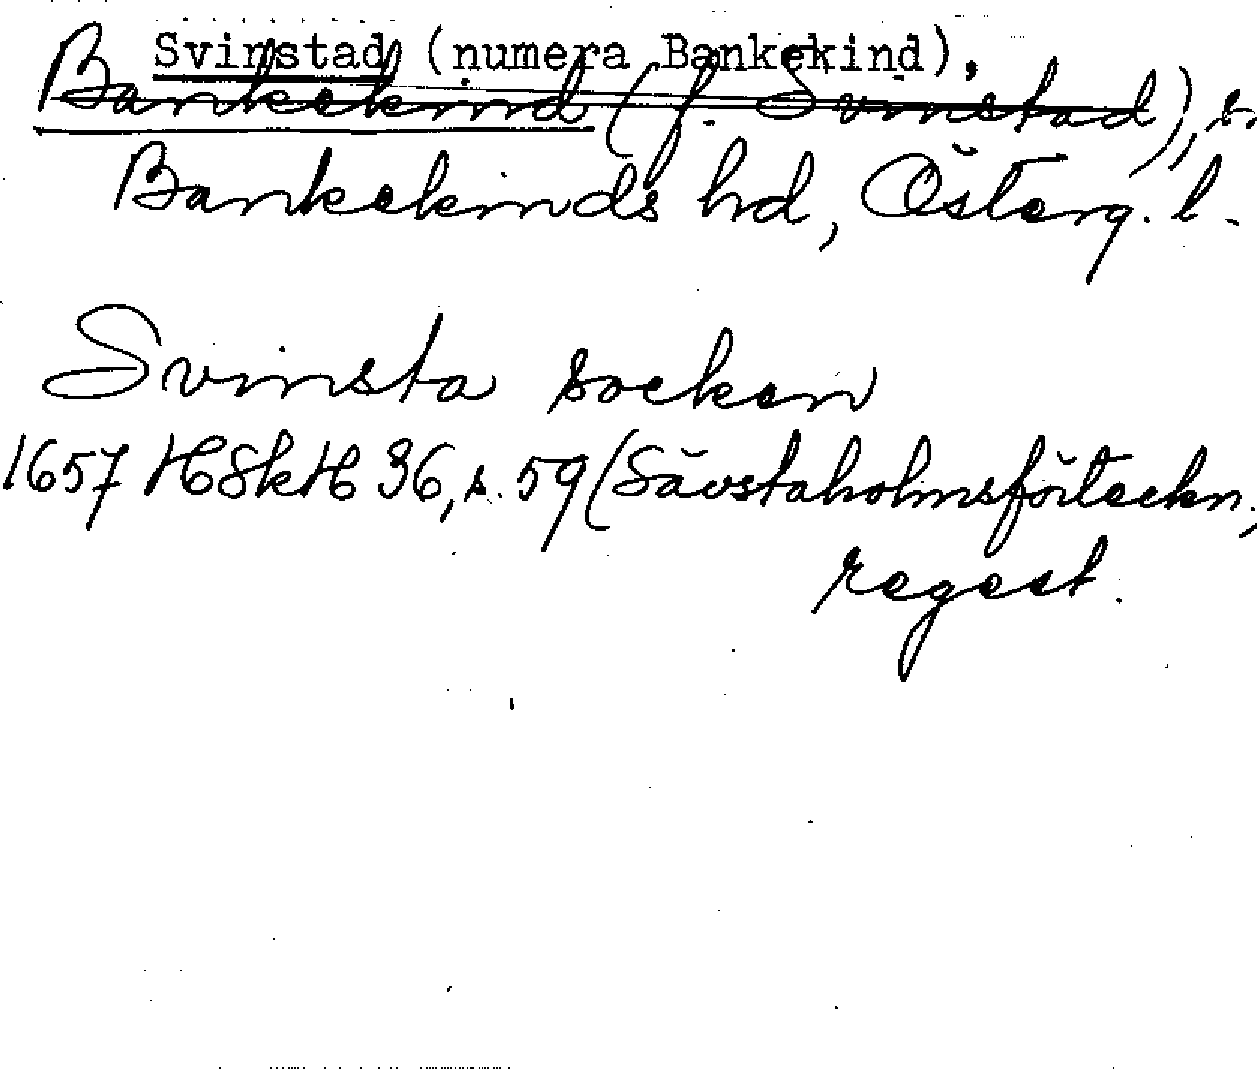 Svinstad (numera Bankekind),
Bankekind (f. Svinstad), s.
Bankekinds hd, Österg. l.
Svinsta socken
1657 HSkH 36, s. 59 (Sävstaholmsförteckn.,
regest.